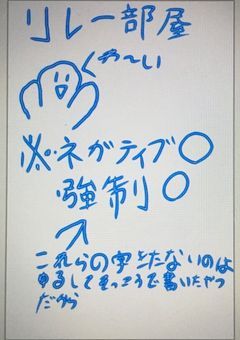 リレー部屋
わ〜い
※ネガティブ○
強制○
これらの字きたないのは
ゆるしてそっこうで書いたやつ
だから